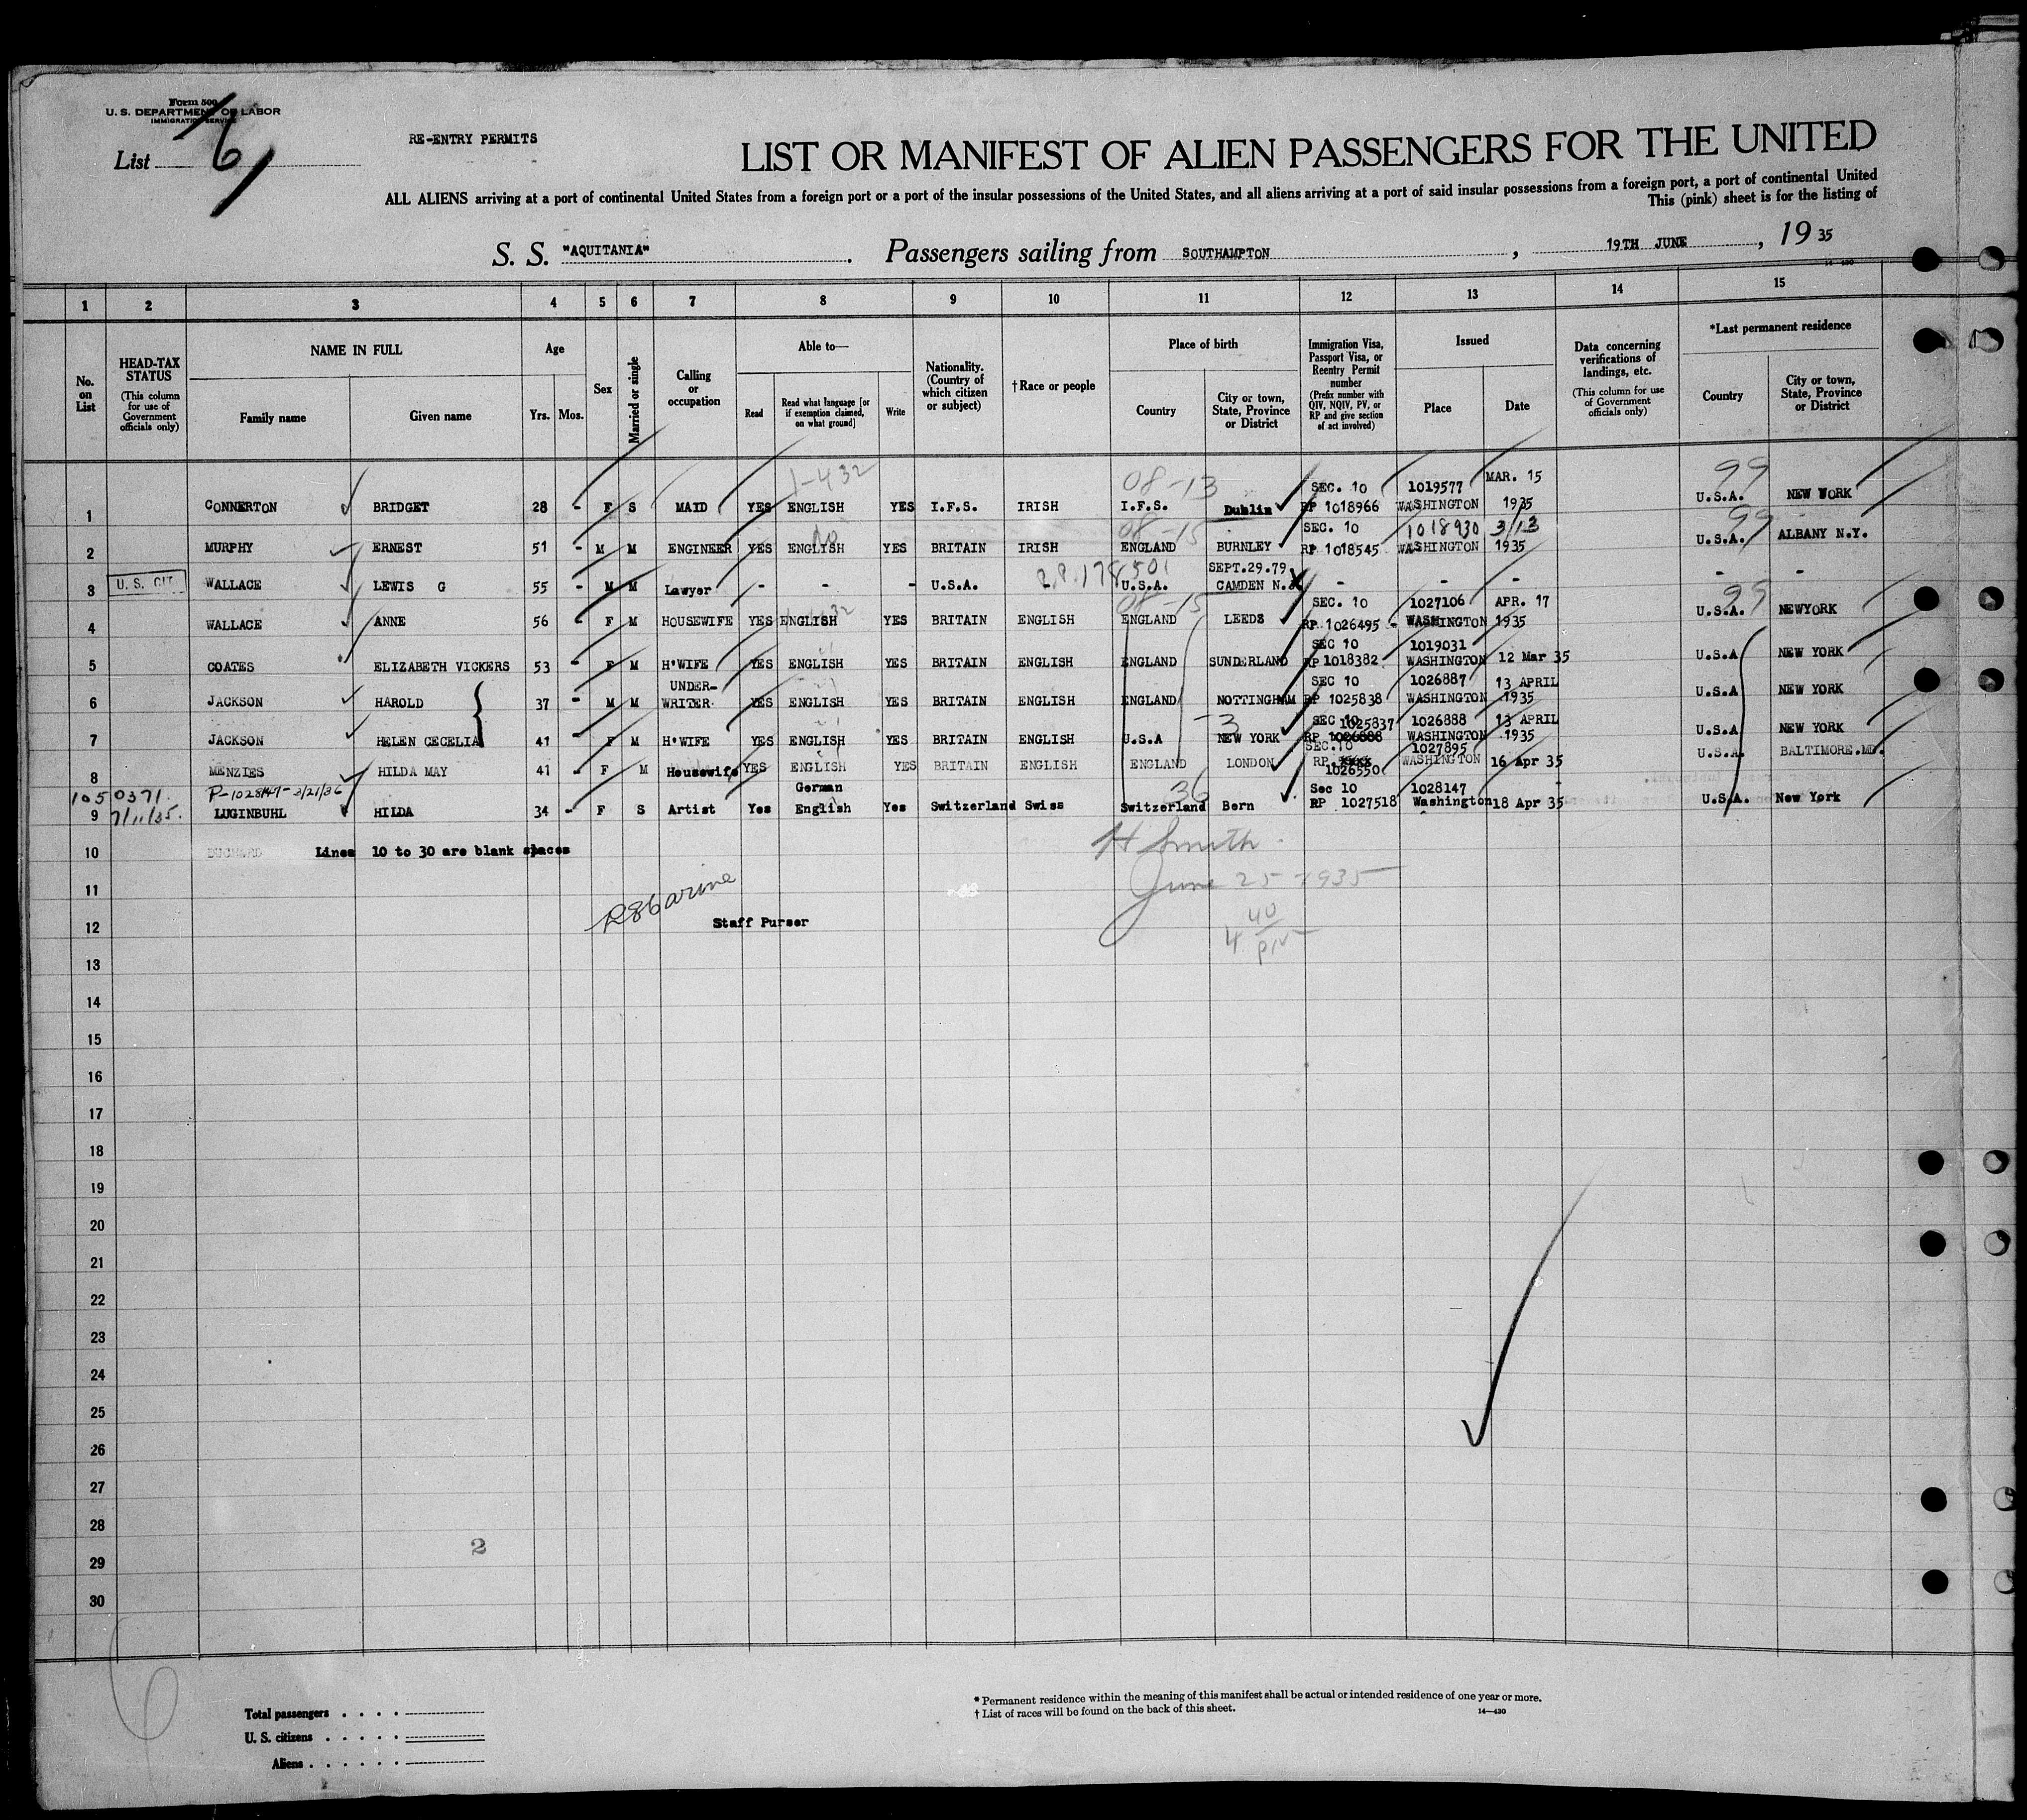 Form 500
U. S. DEPARTMENT OF LABOR
IMMIGRATION SERVICE
List 6
RE-ENTRY PERMITS
LIST OR MANIFEST OF ALIEN PASSENGERS FOR THE UNITED
ALL ALIENS arriving at a port of continental United States from a foreign port or a port of the insular possessions of the United States, and all aliens arriving at a port of said insular possessions from a foreign port, a port of continental United
This (pink) sheet is for the listing of
S. S. "AQUITANIA" . Passengers sailing from SOUTHAMPTON , 19TH JUNE , 19 35
1 2 3 4 5 6 7 8 9 10 11 12 13 14 15
No. on List
HEAD-TAX STATUS
(This column for use of Government officials only)
NAME IN FULL
Family name Given name
Age
Yrs. Mos.
Sex
Married or single
Calling or occupation
Able to—
Read
Read what language [or if exemption claimed, on what ground]
Write
Nationality. (Country of which citizen or subject)
†Race or people
Place of birth
Country
City or town, State, Province or District
Immigration Visa, Passport Visa, or Reentry Permit number
(Prefix number with QIV, NQIV, PV, or RP and give section of act involved)
Issued
Place Date
Data concerning verifications of landings, etc.
(This column for use of Government officials only)
*Last permanent residence
Country
City or town, State, Province or District
1-432 08-13 SEC. 10 1019577 MAR. 15 99
1 CONNERTON BRIDGET 28 - F S MAID YES ENGLISH YES I.F.S. IRISH I.F.S. Dublin RP 1018966 WASHINGTON 1935 U.S.A. NEW YORK
No 08-15 SEC. 10 1018930 3/13 99
2 MURPHY ERNEST 51 - M M ENGINEER YES ENGLISH YES BRITAIN IRISH ENGLAND BURNLEY RP 1018545 WASHINGTON 1935 U.S.A. ALBANY N.Y.
178501 SEPT.29.79
3 U. S. CIT. WALLACE LEWIS G 55 - M M Lawyer - - - U.S.A. U.S.A. CAMDEN N.J. - - - - -
08-15 SEC. 10 1027106 APR. 17 99
4 WALLACE ANNE 56 - F M HOUSEWIFE YES ENGLISH YES BRITAIN ENGLISH ENGLAND LEEDS RP 1026495 - WASHINGTON 1935 U.S.A. NEWYORK
SEC 10 1019031
5 COATES ELIZABETH VICKERS 53 - F M H'WIFE YES ENGLISH YES BRITAIN ENGLISH ENGLAND SUNDERLAND RP 1018382 WASHINGTON 12 Mar 35 U.S.A NEW YORK
UNDER- SEC 10 1026887 13 APRIL
6 JACKSON HAROLD 37 - M M WRITER YES ENGLISH YES BRITAIN ENGLISH ENGLAND NOTTINGHAM RP 1025838 WASHINGTON 1935 U.S.A NEW YORK
-3 SEC 10 1025837 1026888 13 APRIL
7 JACKSON HELEN CECELIA 41 - F M H'WIFE YES ENGLISH YES BRITAIN ENGLISH U.S.A NEW YORK RP 1026888 WASHINGTON 1935 U.S.A NEW YORK
SEC.10 1027895
8 MENZIES HILDA MAY 41 - F M Housewife YES ENGLISH YES BRITAIN ENGLISH ENGLAND LONDON RP 1026550 WASHINGTON 16 Apr 35 U.S.A. BALTIMORE.MD.
1050371. P-1028147-3/21/36 German 36 Sec 10 1028147
9 7/11/35. LUGINBUHL HILDA 34 - F S Artist Yes English Yes Switzerland Swiss Switzerland Bern RP 1027518 Washington 18 Apr 35 U.S.A. New York
10 Lines 10 to 30 are blank spaces
H Smith
11
June 25-1935
12 Staff Purser
40
4
13
14
15
16
17
18
19
20
21
22
23
24
25
26
27
28
2
29
30
6
* Permanent residence within the meaning of this manifest shall be actual or intended residence of one year or more.
† List of races will be found on the back of this sheet. 14—430
Total passengers . . . .
U. S. citizens . . . . .
Aliens . . . . . .